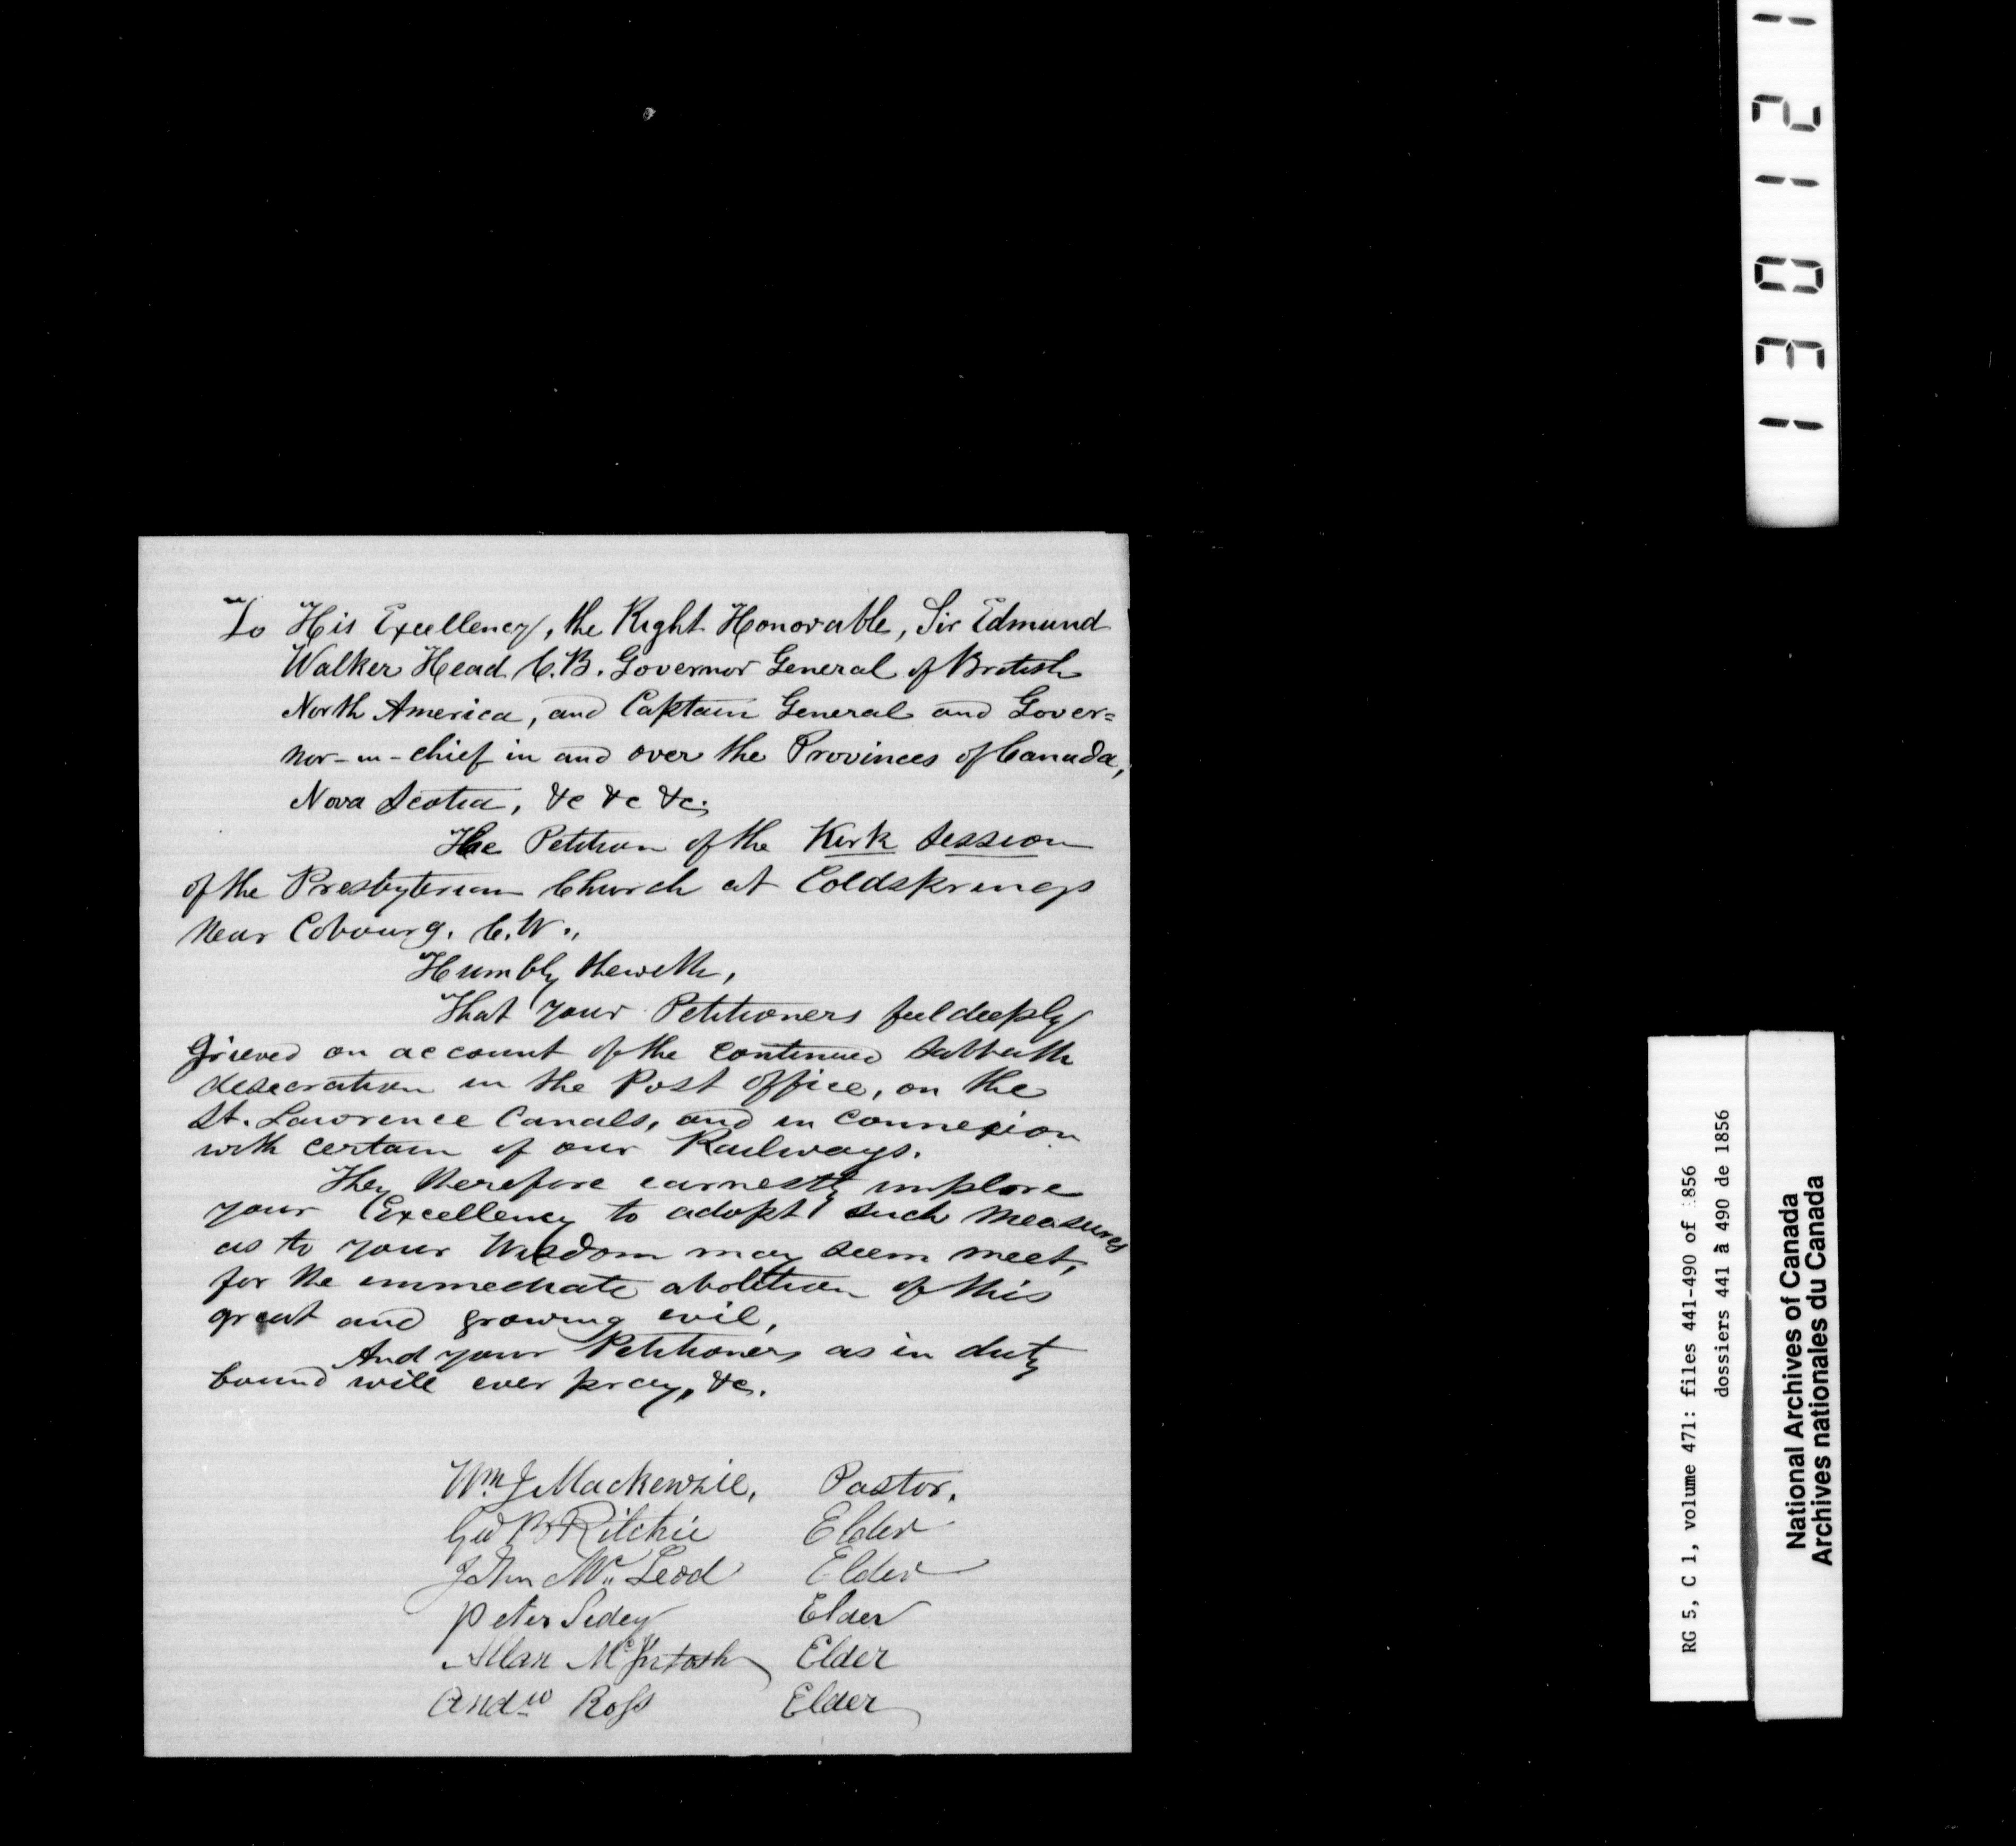 To His Excellency, the Right Honorable, Sir Edmund
Walker Head C.B. Governor General of British
North America, and Captain General and Gover=
nor-in-chief in and over the Provinces of Canada,
Nova Scotia, &c &c &c.
The Petition of the Kirk Session
of the Presbyterian Church at Coldsprings
near Cobourg. C.W.,
Humbly Sheweth,
That your Petitioners feel deeply
grieved on account of the continued Sabbath
desecration in the Post Office, on the
St. Lawrence Canals, and in connexion
with certain of our Railways.
They therefore earnestly implore
your Excellency to adopt such measures
as to your Wisdom may seem meet,
for the immediate abolition of this
great and growing evil,
And your Petitioners as in duty
bound will ever pray, &c.
Wm J Mackenzie, Pastor.
Geo B Ritchie Elder
John Mc Leod Elder
Peter Sidey Elder
Allan McIntosh Elder
Andw Ross Elder
130121
RG 5, C 1, volume 471: files 441-490 of 1856
dossiers 441 à 490 de 1856
National Archives of Canada
Archives nationales du Canada